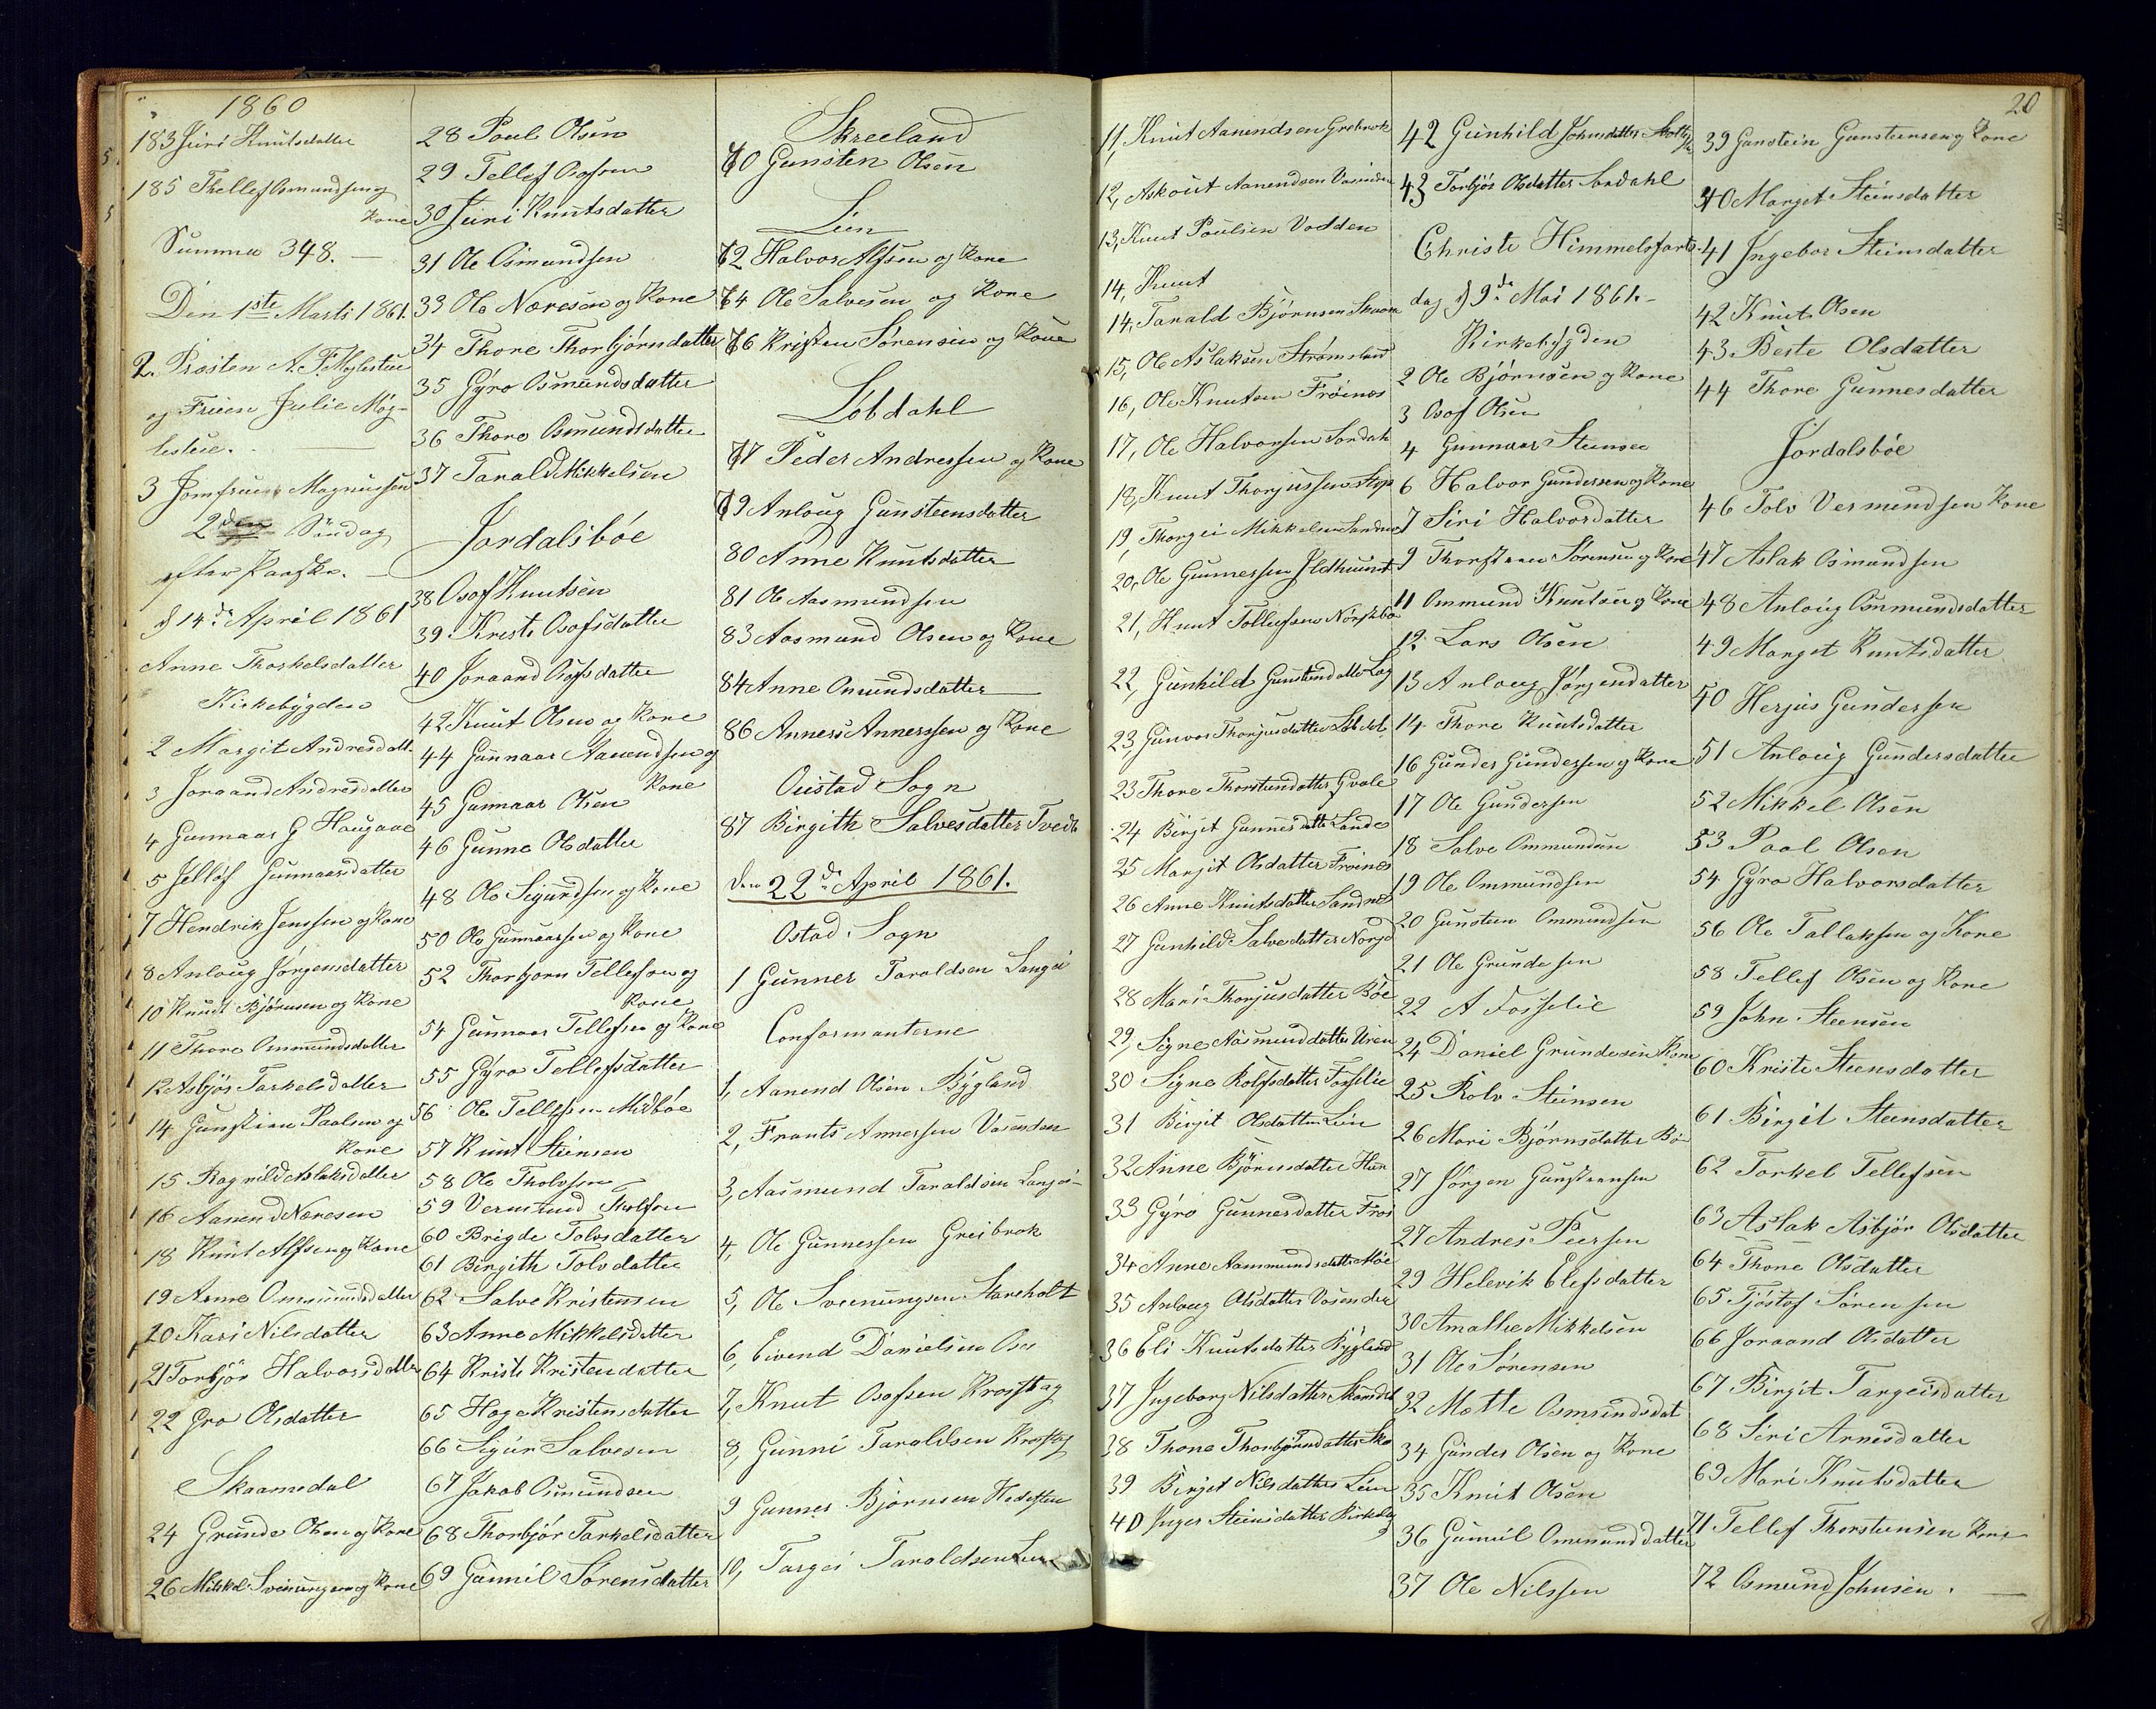 1860
183 Siri Knutsdatter
185 Thellef Osmundsen og
Kone
Summa 348. —
Den 1ste Marti 1861.
2. Præsten A. F.
og Fruen Julie Møg-
lestue.
3 Jomfrue Magnussen
2den Söndag
efter Paaske. —
d 14de April 1861
Anne Thorkelsdatter
Kirkebygden
2 Margit Andresdatt.
3 Joraand Andresdatter
4 Gunnaar G Haugaae
5 Jellof Gunnaarsdatter
7 Hendrik Jenssen og Kone
8 Anloug Jörgensdatter
10 Knud Björnsen og Kone
11 Thore Ommundsdatter
12 Asbjör Tarkelsdatter
14 Gunstein Paalsen og
Kone
15 Ragnild Aslaksdatter
16 Aanend Neresen
18 Knut Alfsen og Kone
19 Anne Ommundsdatter
20 Kari Nilsdatter
21 Torbjör Halvorsdatter
22 Gro Olsdatter
Skaamedal
24 Grunde Olsen og Kone
26 Mikkel Sveinungsen og Kone
28 Poul Olsen
29 Tellef Osofsen
30 Siri Knutsdatter
31 Ole Osmundsen
33 Ole Næresen og Kone
34 Thore Thorbjörnsdatter
35 Gyro Osmundsdatter
36 Thoro Osmundsdatter
37 Tarald Mikkelsen
Jordalsböe
38 Osof Knutsen
39 Kresti Osofsdatter
40 Joraand Osofsdatter
42 Knut Olsen og Kone
44 Gunnaar Aanendsen og
Kone
45 Gunnaar Olsen
46 Gunne Olsdatter
48 Ole Sigurdsen og Kone
50 Ole Gunnaarsen og Kone
52 Thorbjorn Tellefsen og
Kone
54 Gunnaar Tellefsen og Kone
55 Gyro Tellefsdatter
56 Ole Tellefsen Midböe
57 Knut Steinsen
58 Ole Tholvsen
59 Vermund Tholfsen
60 Brigde Tolvsdatter
61 Birgith Tolvdatter
62 Salve Kristensen
63 Anne Mikkelsdatter
64 Kriste Kristendatter
65 Hage Kristensdatter
66 Sigur Salvesen
67 Jakob Osmundsen
68 Thorbjör Tarkelsdatter
69 Gunnil Sörensdatter
Skreeland
70 Gunsten Olsen
Lien
72 Halvor Alfsen og Kone
74 Ole Salvesen og Kone
76 Kristen Sörensen og Kone
Löbdahl
77 Peder Andressen og Kone
79 Anloug Gunsteensdatter
80 Anne Knutsdatter
81 Ole Aasmundsen
83 Aasmund Olsen og Kone
84 Anne Omundsdatter
86 Anners Annerssen og Kone
Oustad Sogn
87 Birgith Salvesdatter Tvedt
den 22de April 1861.
Ostad Sogn
1 Gunner Taraldsen Langei
Conformanterne
1, Aanend Olsen Bygland
2, Frants Annersen Vasenden
3, Aasmund Taraldsen Langei
4, Ole Gunnersen Greibrok
5, Ole Sveenungsen Stareholt
6, Eivend Danielsen Ose
7, Knut Osofsen Krosshag
8, Gunni Taraldsen
9 Gunner Bjørnsen
10, Targei Taraldsen Lien
11, Knut Aanendsen Grebrok
12, Askout Aanendsen Vasenden
13, Knut Poulsen Vodden
14, Knut
14, Tarald Bjørnsen
15, Ole Aslaksen Strømsland
16, Ole Knutsen Frøines
17, Ole Halvorsen Sordah
18, Knut Thorjussen
19, Thorgei Mikkelsen Sandnes
20, Ole Gunnersen
21, Knut Tollefsen
22, Gunhild Gunstendatter
23, Gunvor Thorjusdatter
23 Thore Thorstendatter Qvale
24 Birgit Gunnersdatter Lande
25 Margit Olsdatter Frøines
26 Anne Knutsdatter Sandnes
27 Gunhild Salvedatter
28 Mari Thorjusdatter Böe
29, Signe Aasmunddatter Uren
30 Signe Rolfsdatter Fosselie
31 Birgit Olsdatter Lien
32 Anne Björnsdatter
33 Gyro Gunnersdatter Frøi
34 Anne Aanmundsdatter
35 Anloug Olsdatter Vasenden
36 Eli Knutsdatter Bygland
37 Ingeborg Nilsdatter
38 Thone Thorbjørndatter
39 Birget Nilsdatter Lien
40 Inger Steinsdatter
42 Gunhild Johnsdatter
43 Torbjör Olsdatter Sordahl
Christi Himmelsfarts-
dag d 9de Mai 1861.-
Kirkebygden
2 Ole Bjørnsen og Kone
3 Osof Olsen
4 Gunnaar Steinsen
6 Halvor Gundersen og Kone
7 Siri Halvordatter
9 Thorstaen Sørensen og Kone
11 Ommund Knutsen og Kone
12 Lars Olsen
13 Anloug Jørgensdatter
14 Thore Knutsdatter
16 Gunder Gundersen og Kone
17 Ole Gundersen
18 Salve Ommundsen
19 Ole Ommundsen
20 Gunsten Ommundsen
21 Ole Grundesen
22 A Fosselie
24 Daniel Grundesen Kone
25 Rolv Steinsen
26 Mari Björnsdatter
27 Jörgen Gunstensen
27 Andres Peersen
29 Helevik Elefsdatter
30 Amallie Mikkelsen
31 Ole Sörensen
32 Mette Osmundsdat
34 Gunder Olsen og Kone
35 Knut Olsen
36 Gunnil Ommunddatter
37 Ole Nilssen
20
39 Gunstein Gunsteensen og Kone
40 Marget Steinsdatter
41 Ingebor Steinsdatter
42 Knut Olsen
43 Beste Olsdatter
44 Thore Gunnesdatter
Jordalsböe
46 Tolv Vermundsen Kone
47 Aslak Osmundsen
48 Anloug Osmundsdatter
49 Marget Knutsdatter
50 Herjus Gundersen
51 Anloug Gundersdatter
52 Mikkel Olsen
53 Paal Olsen
54 Gyro Halvorsdatter
56 Ole Tallaksen og Kone
58 Tellef Olsen og Kone
59 John Steensen
60 Kriste Steensdatter
61 Birgit Steensdatter
62 Torkel Tellefsen
63 Aslak Asbjör Olsdatter
64 Thone Olsdatter
65 Tjöstof Sörensen
66 Joraand Olsdatter
67 Birgit Targeisdatter
68 Siri Arnesdatter
69 Mari Knutsdatter
71 Tellef Thorsteensen Kone
72 Osmund Johnsen. —